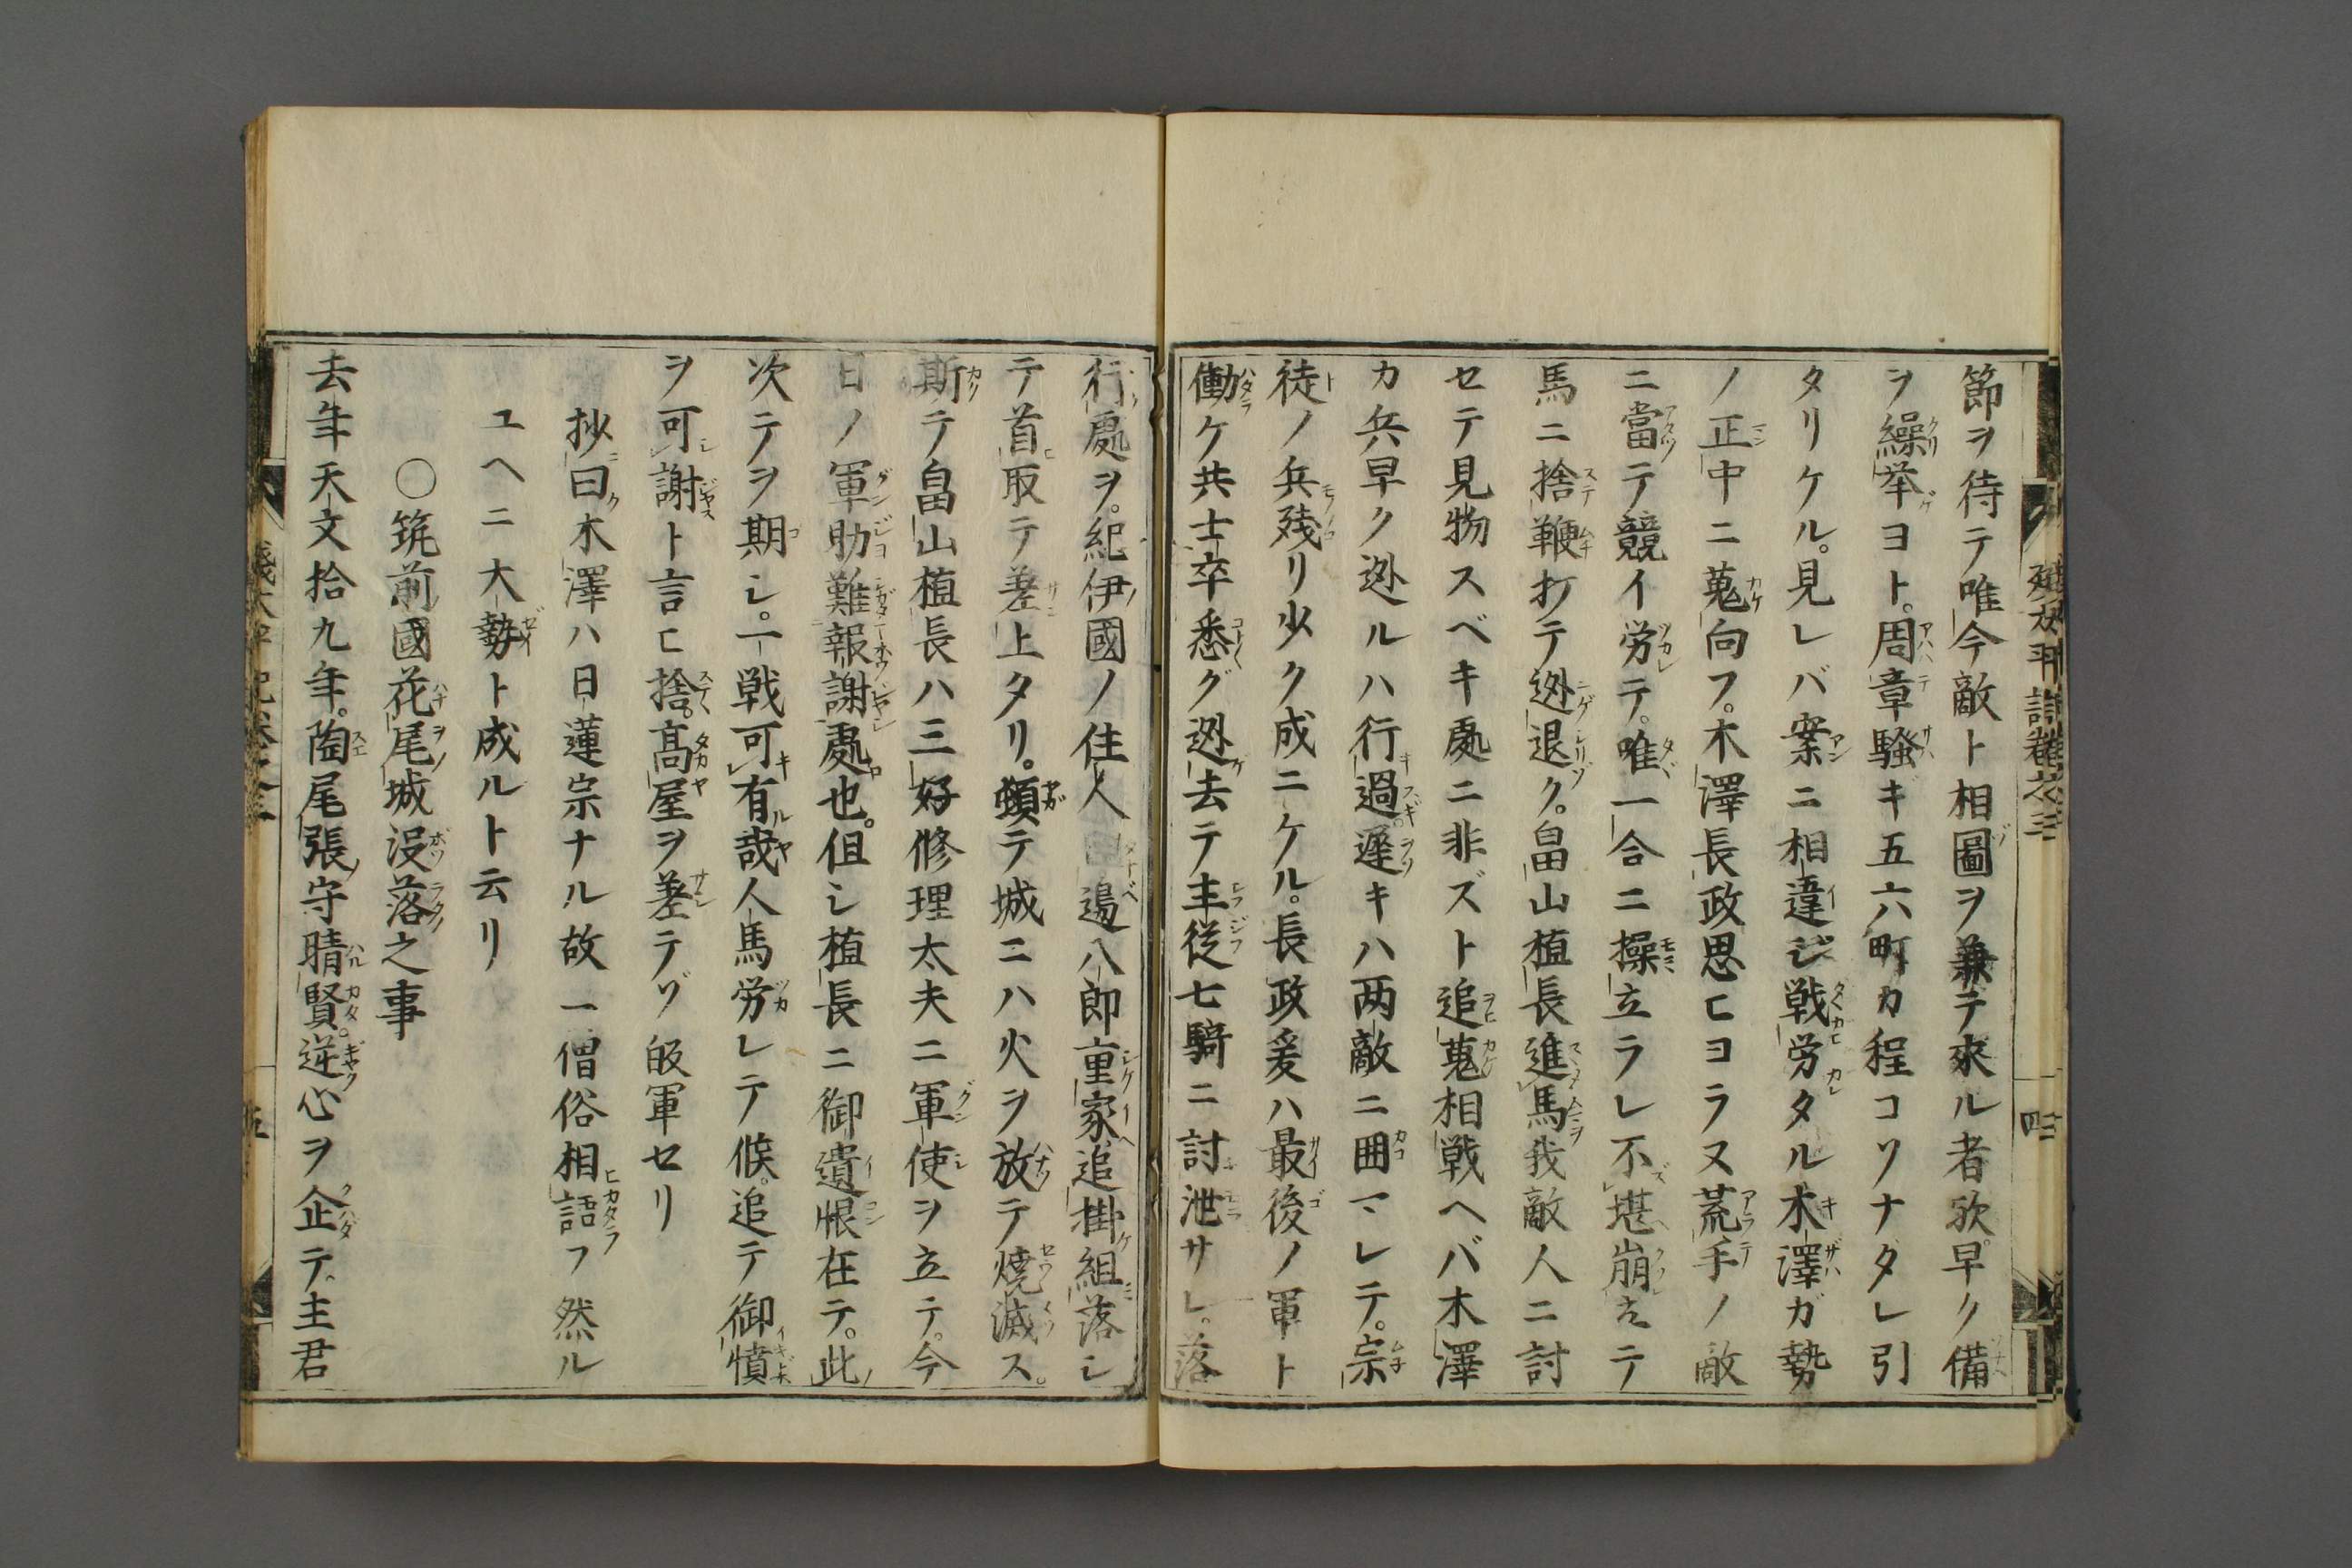 節ヲ待テ唯今敵ト相圖ヲ兼テ來ル者欤早ク備
ヲ繰举ヨト。周章騒ギ五六町カ程コソナタレ引
タリケル。見レバ案ニ相違ジ戦労タル木澤ガ勢
ノ正中ニ蒐向フ。木澤長政思ヒヨラヌ荒手ノ敵
ニ當テ競イ労テ。唯一合ニ操立ラレ不堪崩立テ
馬ニ捨鞭打テ迯退ク。畠山植長進馬我敵人ニ討
セテ見物スベキ處ニ非ズト追蒐相戦ヘバ木澤
カ兵早ク迯ルハ行過遲キハ两敵ニ囲マレテ。宗
徒ノ兵残リ少ク成ニケル。長政爰ハ最後ノ軍ト
働ケ共士卒悉グ迯去テ主従七騎ニ討泄サレ。落
行處ヲ。紀伊國ノ住人田邉八郎重家追掛組落シ
テ首取テ差上タリ。頓テ城ニハ火ヲ放テ燒滅ス。
斯テ畠山植長ハ三好修理太夫ニ軍使ヲ立テ。今
日ノ軍助難報謝處也。但シ植長ニ御遺恨在テ。此
次テヲ期シ。一戦可有哉人馬労レテ候。追テ御憤
ヲ可謝ト言ヒ捨。髙屋ヲ差テゾ皈軍セリ
抄曰木澤ハ日蓮宗ナル故一僧俗相語フ然ル
ユヘニ大勢ト成ルト云リ
○筑前國花尾城没落之事
去年天文拾九年。陶尾張守晴賢。逆心ヲ企テ。主君